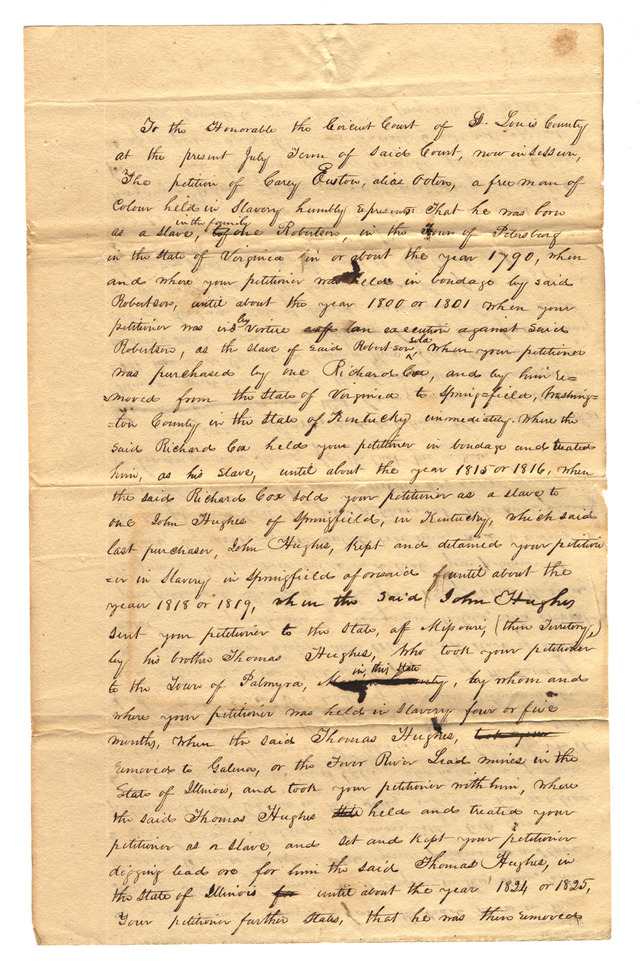 To the Honorable the Circuit Court of St. Louis County
at the present July Term of said Court, now in session,
The petition of Carey Easton, alias a free man of
Colour held in Slavery humbly represents: That he was born
as a slave, in the family Robertson, in the Town of Petersburg
in the State of Virginia in or about the year 1790, when
and where your petitioner was held in bondage by said
Robertson, until about the year 1800 or 1801 when your
petitioner was by Vertue an execution against said
Robertson, as the slave of said Robertson sold, when your petitioner
was purchased by one Richard Cox, and by him re=
=moved from the State of Virginia to Spring=field, Washing=
=ton County in the State of Kentucky immediately. Where the
said Richard Cox held your petitioner in bondage and treated
him, as his slave, until about the year 1815 or 1816, when
the said Richard Cox sold your petitioner as a slave to
one John Hughes of Springfield, in Kentucky, which said
last purchaser, John Hughes, kept and detained your petition
=er in Slavery in Springfield aforesaid until about the
year 1818 or 1819, when the said John Hughes
sent your petitioner to the State, of Missouri, (then Territory)
by his brother Thomas Hughes, who took your petitioner
to the Town of Palmyra, in this State, by whom and
where your petitioner was held in slavery four or five
months, when the said Thomas Hughes,
removed to Galena, or the Fever River Lead mines in the
State of Illinois, and took your petitioner with him, where
the said Thomas Hughes held and treated your
petitioner as a slave and set and kept your petitioner
digging lead ore for him the said Thomas Hughes, in
the State of Illinois until about the year 1824 or 1825,
Your petitioner further States, that he was then removed